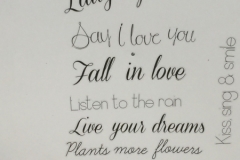 Say I love you
Fall in love
Listen to the rain
Live your dreams
Plants more flowers
Kiss, sing & smile